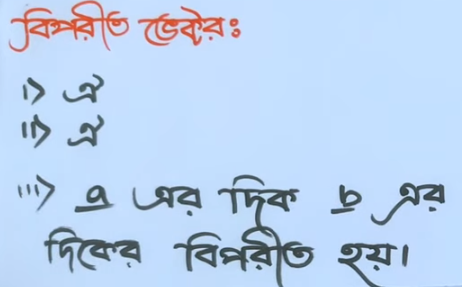 বিপরীত ভেক্টর:
i> ঐ
ii> ঐ
iii> a এর দিক b এর
দিকের বিপরীত হয়।